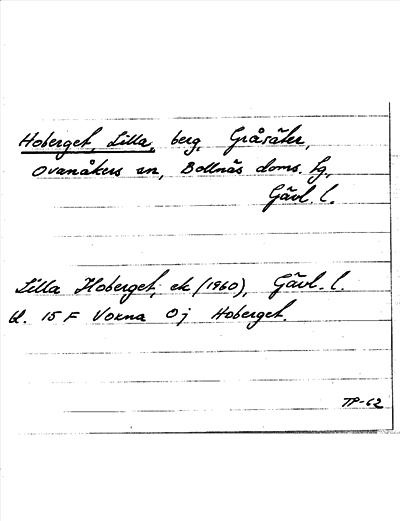 Hoberget, Lilla, berg, Gråsäter,
Ovanåkers sn, Bollnäs doms. tg,
Gävl. l.
Lilla Hoberget, ek (1960), Gävl. l.
bl. 15 F Voxna Oj Hoberget.
TP-62